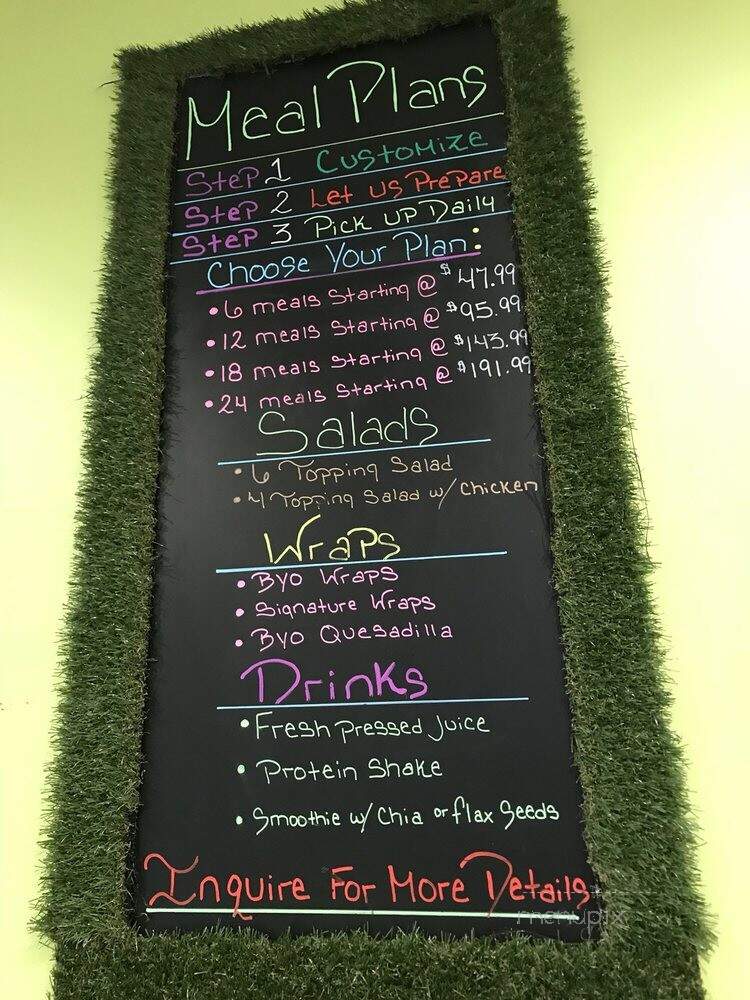 Meal Plans
Step 1 Customize
Step 2 Let us Prepare
Step 3 Pick up Daily
Choose Your Plan:
• 6 meals Starting @ $47.99
• 12 meals Starting @ $95.99
• 18 meals Starting @ $143.99
• 24 meals Starting @ $191.99
Salads
• 6 Topping Salad
• 4 Topping Salad w/ Chicken
Wraps
• BYO Wraps
• Signature Wraps
• BYO Quesadilla
Drinks
• Fresh Pressed Juice
• Protein Shake
• Smoothie w/ Chia or flax Seeds
Inquire For More Details
menupix